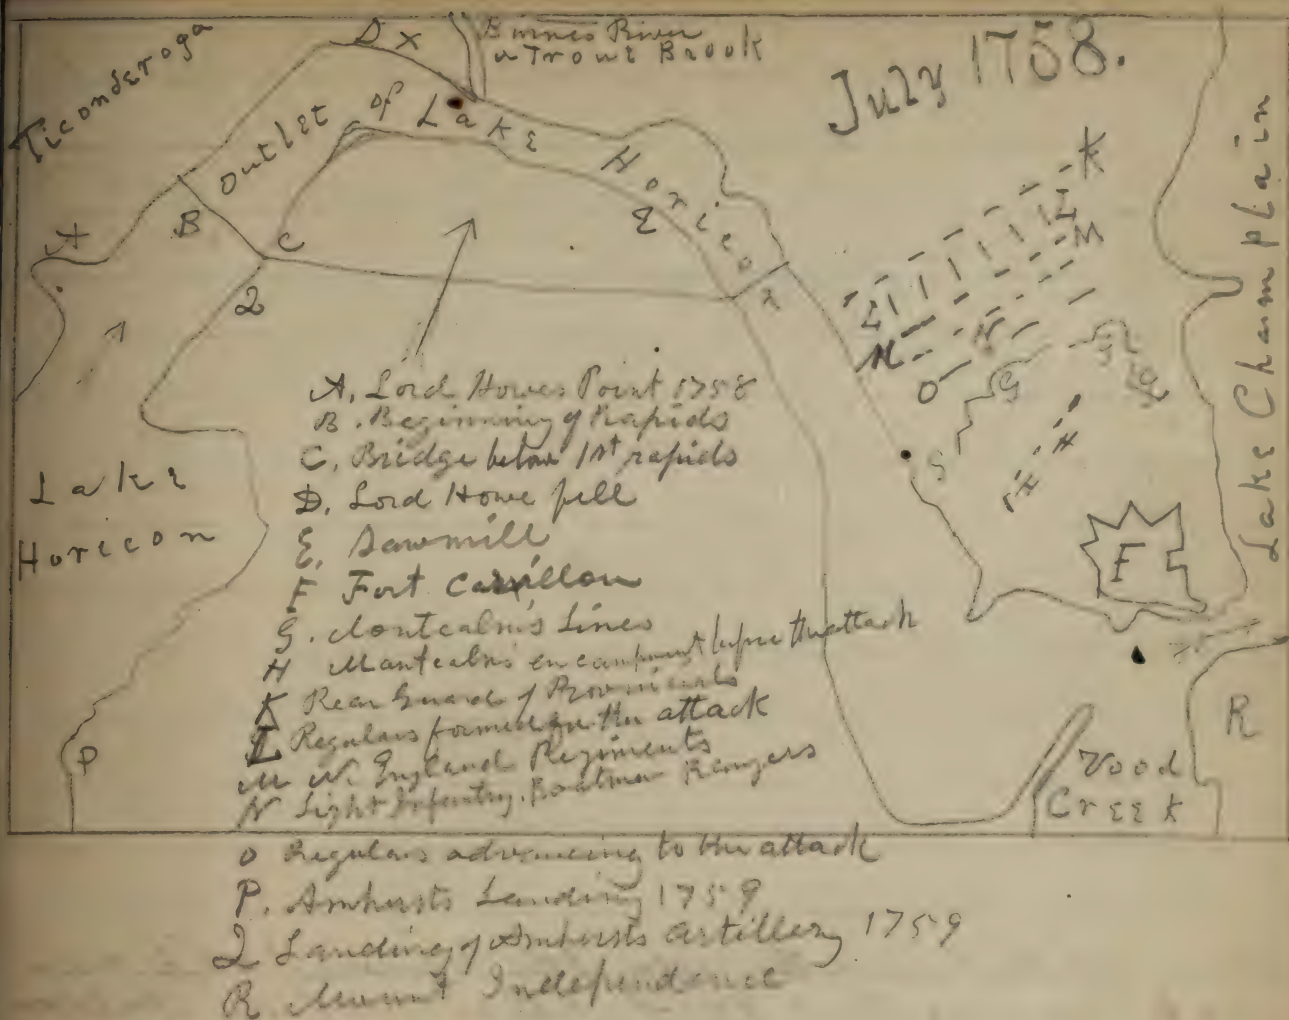 July 1758.
Ticonderoga
D x
River
or Trout Brook
Outlet of Lake Horicon
A
B
C
Q
E
x
K
L
M
L
M
N
O
G
G
G
G
H
H
F
R
P
Lake Champlain
Lake
Horicon
Wood
Creek
A. Lord Howes Point 1758
B. Beginning of Rapids
C. Bridge below 1st rapids
D. Lord Howe fell
E. Sawmill
F Fort Carillon
G. Montcalm's Lines
H Montcalm's encampment before the attack
K Rear Guard of Provincials
L Regulars formed for the attack
M N. England Regiments
N Light Infantry. Boatmen Rangers
O Regulars advancing to the attack
P. Amhersts Landing 1759
Q Landing of Amhersts artillery 1759
R. Mount Independence